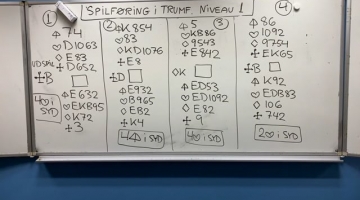 SPILFØRING i TRUMF. NIVEAU 1
①
♠ 74
♡ D1063
♢ E83
♣ D652
UDSPIL
♣B
♠ E632
♡ EKB95
♢ K72
♣ 3
4♡ i SYD
②
♠K854
♡83
♢KD1076
♣E8
♣D
♠E932
♡B965
♢EB2
♣K4
4♠ i SYD
③
♠5
♡KB86
♢9543
♣E842
♢K
♠ED53
♡ED1092
♢E82
♣9
4♡ i SYD
④
♠86
♡1092
♢9754
♣EK65
♣B
♠K92
♡EDB83
♢106
♣742
2♡ i SYD